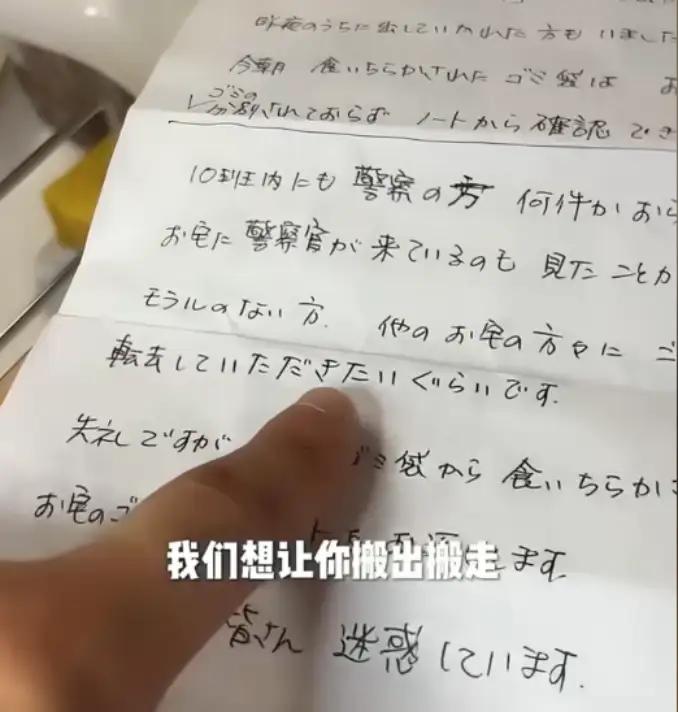 昨夜のうちに出していかれた方もいました
今朝 食いちらかされた ゴミ袋は お
ゴミの
分別されておらず ノートから確認でき
10班内にも警察の方 何件かおら
お宅に警察官が来ているのも 見たことが
モラルのない方、他のお宅の方々に ご
転去していただきたいぐらいです。
失礼ですが ゴミ袋から 食いちらかさ
お宅のゴ
します。
我们想让你搬出搬走
皆さん 迷惑しています。